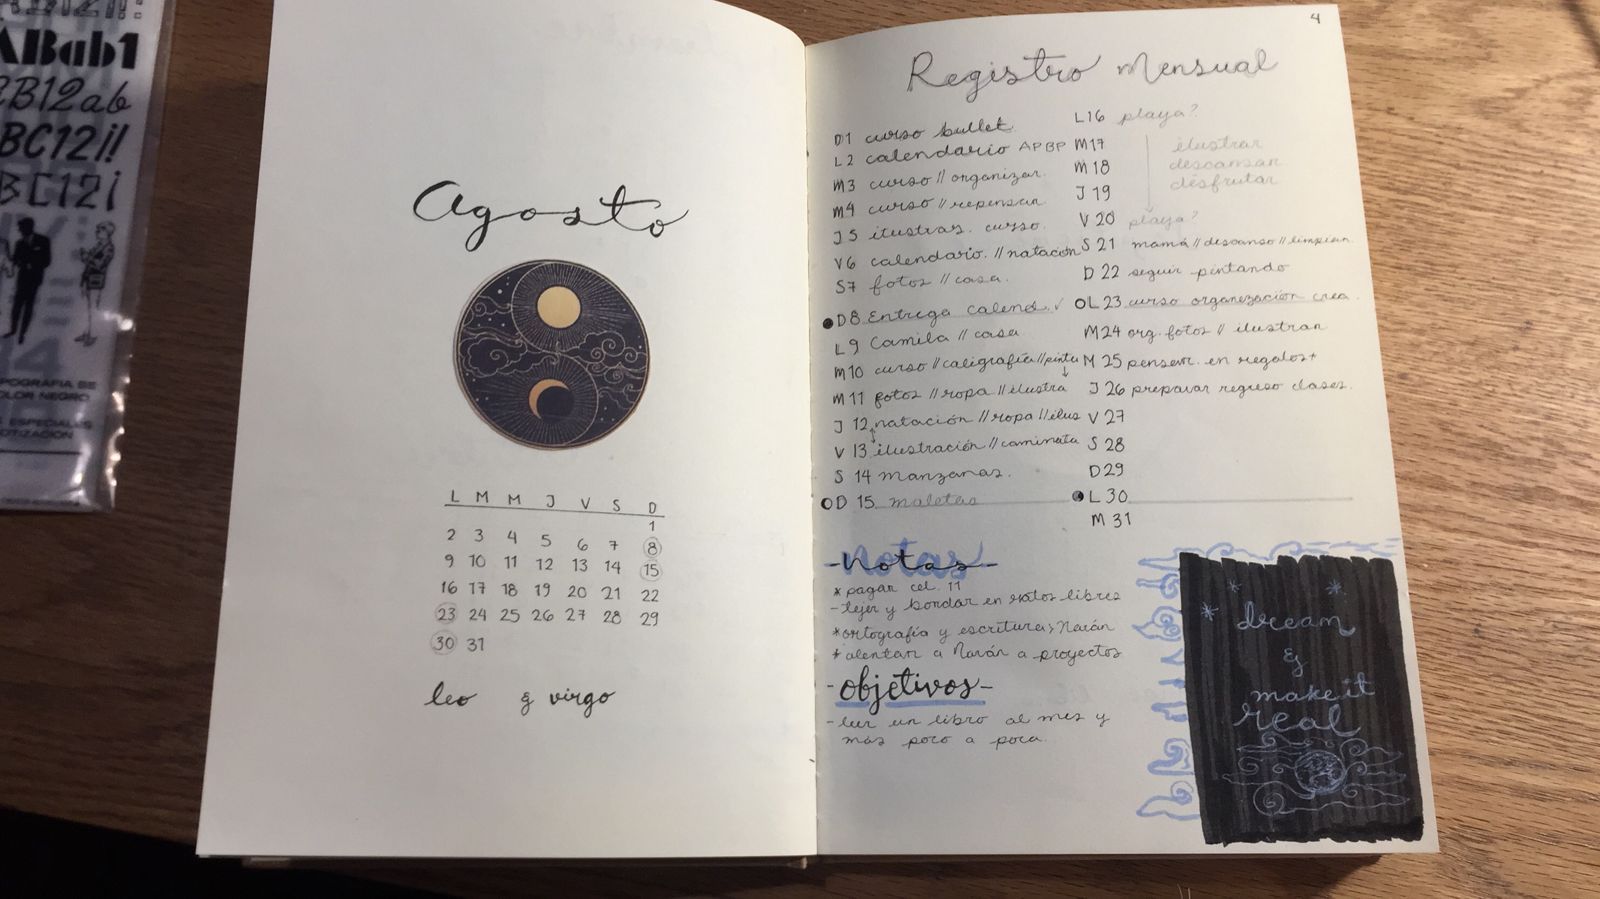 ABab1
B12ab
BC12!!
BC12¡
POGRAFIA SE
OLOR NEGRO
ESPECIALES
OTIZACION
Agosto
L M M J V S D
1
2 3 4 5 6 7 8
9 10 11 12 13 14 15
16 17 18 19 20 21 22
23 24 25 26 27 28 29
30 31
leo & virgo
4
Registro Mensual
D1 curso bullet.
L2 calendario APBP
M3 curso // organizar.
M4 curso // repensar
J5 ilustras. curso.
V6 calendario. // natación
S7 fotos // casa.
D8 Entrega Calend. ✓
L9 Camila // casa
M10 curso // caligrafía // pintu
M11 fotos // ropa // ilustra
J 12 natación // ropa // ilus
V 13 ilustración // caminata
S 14 manzanas.
D 15 maletas
L16 playa?
M17 ilustrar
M18 descansar
J 19 disfrutar
V 20 playa?
S 21 mamá // descanso // limpiar.
D 22 seguir pintando
L 23 curso organización crea.
M24 org. fotos // ilustrar
M 25 pensar en regalos+
J 26 preparar regreso clases.
V 27
S 28
D29
L 30
M 31
-Notas-
* pagar cel. 11
- tejer y bordar en ratos libres
* ortografía y escritura, Narán
* alentar a Narán a proyectos
-objetivos-
- leer un libro al mes y
más poco a poco.
dream
&
make it
real